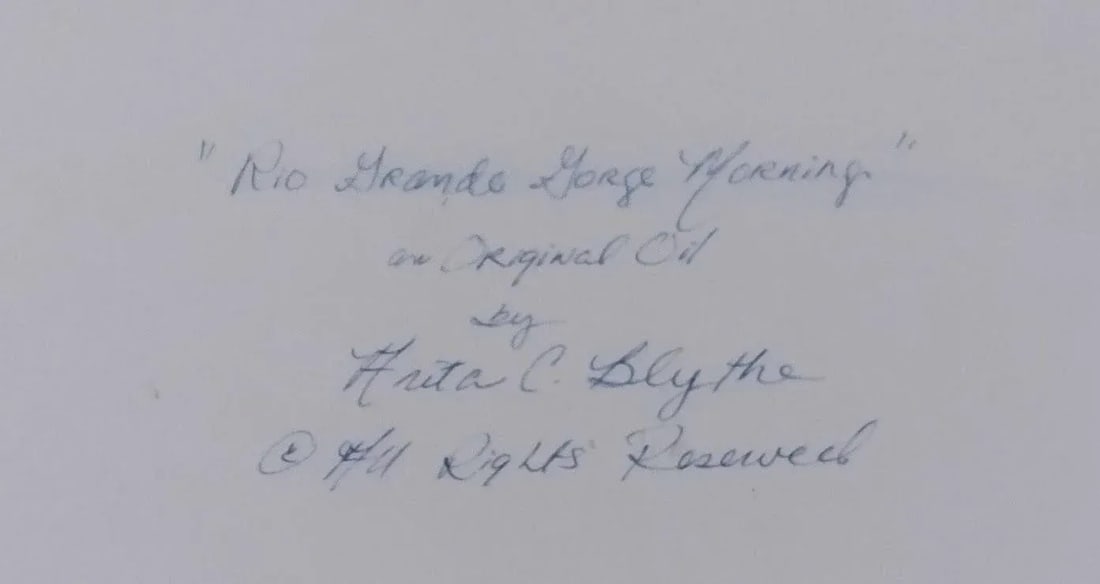 "Rio Grande Gorge Morning"
an Original Oil
by
Anita C. Blythe
© All Rights Reserved